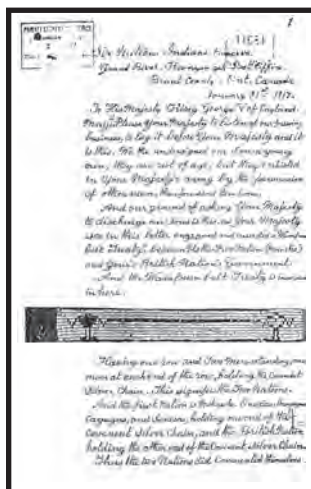 1
Six Nations Indians Reserve
Grand River, Post Office
Brant County, Ont. Canada
January 31st 1917.
To His Majesty King George V of England.
May it Please Your Majesty to listen of our
business, to lay it before Your Majesty and it
is this. We the undersigned
own, they are not of age, but they enlisted
in Your Majesty's army by the persuasion
of other men,
And our ground of asking Your Majesty
to discharge our sons is this, as Your Majesty
see in this letter engraved and
belt Treaty, between Us the Five Nation
and Your British Nation's Government.
And the Wampum belt Treaty is
in here.
Having one row and Two Men standing, one
man at each end of the row, holding the Covenant
Silver Chain. This signifies the Two Nations.
And the first Nation is Mohawk, Oneidas,
Cayugas, and Senecas, holding one end of the
Covenant Silver Chain, and the British Nation
holding the other end of the Covenant Silver Chain.
Thus the two Nations did